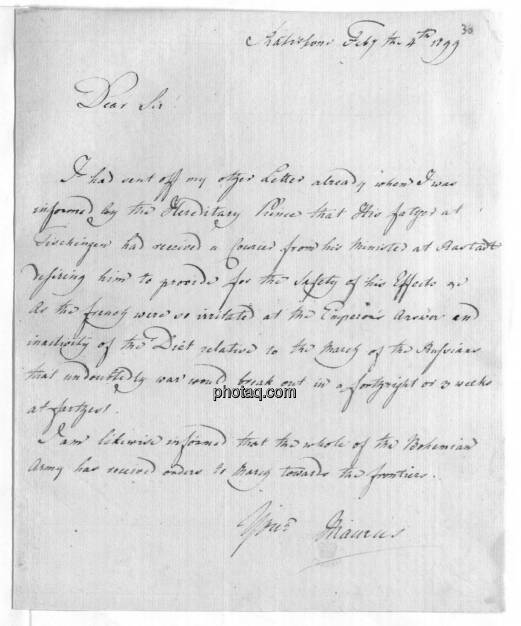 30
Ratisbone Feby the 4th 1799
Dear Sir
I had sent off my other Letter already when I was
informed by the Hereditary Prince that His father at
Tischingen had received a Courier from his Minister at Rastadt
desiring him to provide for the Safety of his Effects &c
As the french were so irritated at the Emperor's Answer and
inactivity of the Diet relative to the March of the Russians
that undoubtedly war would break out in a fortnight or 3 weeks
at farthest.
photaq.com
I am likewise informed that the whole of the Bohemian
Army has received orders to March towards the frontiers.
Yours Maurus